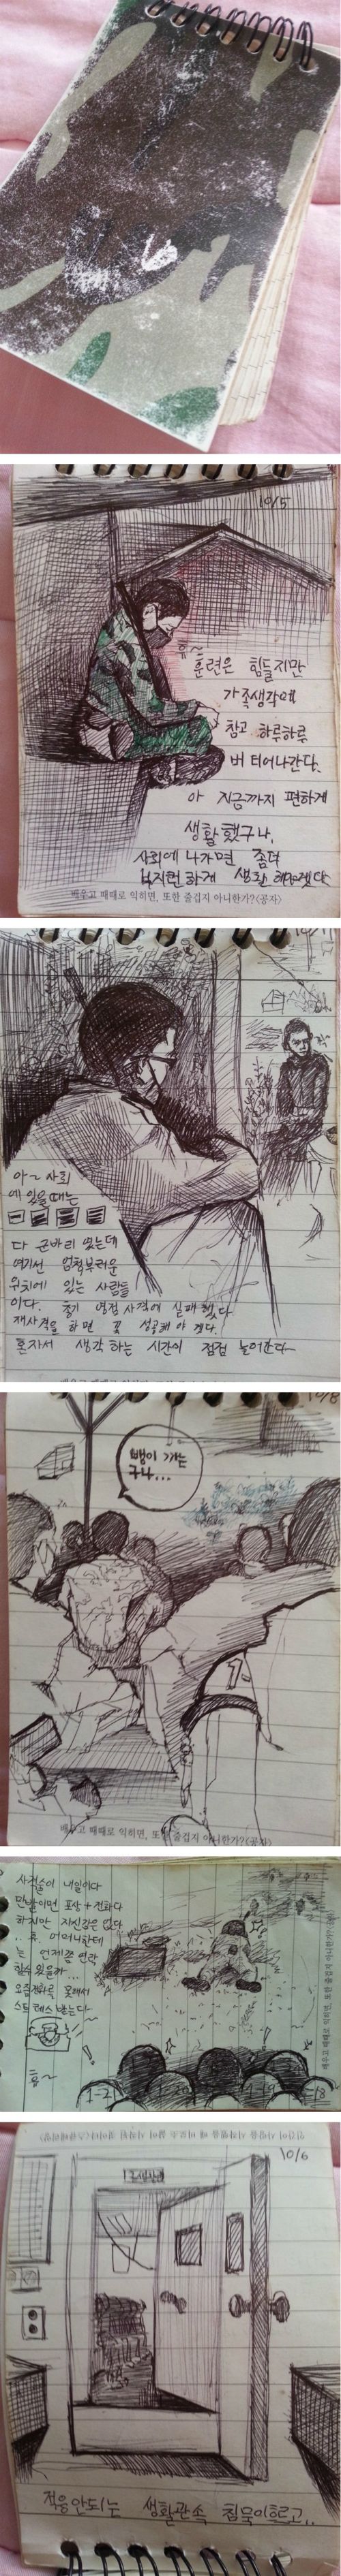 10/5
휴~
훈련은 힘들지만
가족생각에
참고 하루하루
버티어나간다.
아 지금까지 편하게
생활했구나,
사회에 나가면 좀더
부지런하게 생활해야겠다
배우고 때때로 익히면, 또한 즐겁지 아니한가?<공자>
아~ 사회
에 있을때는
다 군바리 였는데
여기선 엄청부러운
위치에 있는 사람들
이다. 영점 사격에 실패했다
재사격을 하면 꼭 성공해야 겠다.
혼자서 생각하는 시간이 점점 늘어간다~
10/8
뺑이 까는
구나...
배우고 때때로 익히면, 또한 즐겁지 아니한가?<공자>
사격술이 내일이다
만발이면 포상+전화다
하지만 자신감은 없다
어머니한테
는 언제쯤 연락
할수 있을까...
요즘 전화를 못해서
스트레스 받는다~
휴~
배우고 때때로 익히면, 또한 즐겁지 아니한가?<공자>
10/6
적응안되는 생활관속 침묵이흐르고..